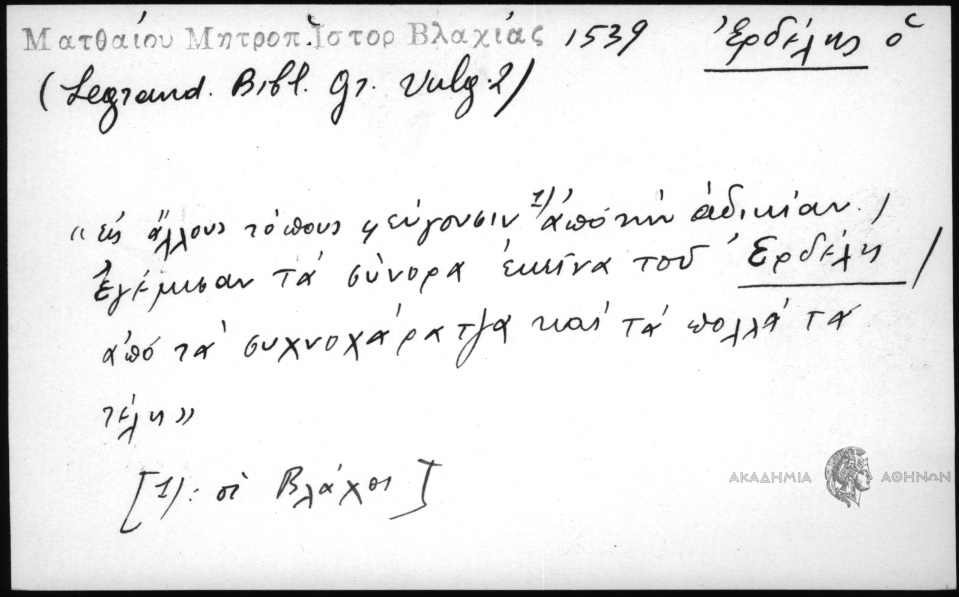 Ματθαίου Μητροπ. Ἱστορ Βλαχίας 1539 Ἐρδέλης ὁ
(Legrand. Bibl. Gr. Vulg. 2)
“εἰς ἄλλους τόπους φεύγουσιν 1) ἀπό τήν ἀδικίαν /
Ἐγέμισαν τά σύνορα ἐκεῖνα τοῦ Ἐρδέλη /
ἀπό τά συχνοχάρατζα καί τά πολλά τα
τέλη»
[1): οἱ Βλάχοι]
ΑΚΑΔΗΜΙΑ ΑΘΗΝΩΝ